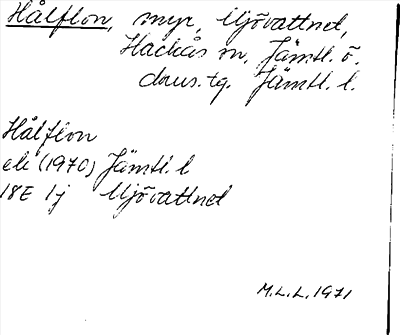 Hålflon, myr, Mjövattnet,
Hackås sn, Jämtl. ö.
doms.tg. Jämtl. l.
Hålflon
ek (1970) Jämtl. l
18E 1j Mjövattnet
M.L.L. 1971